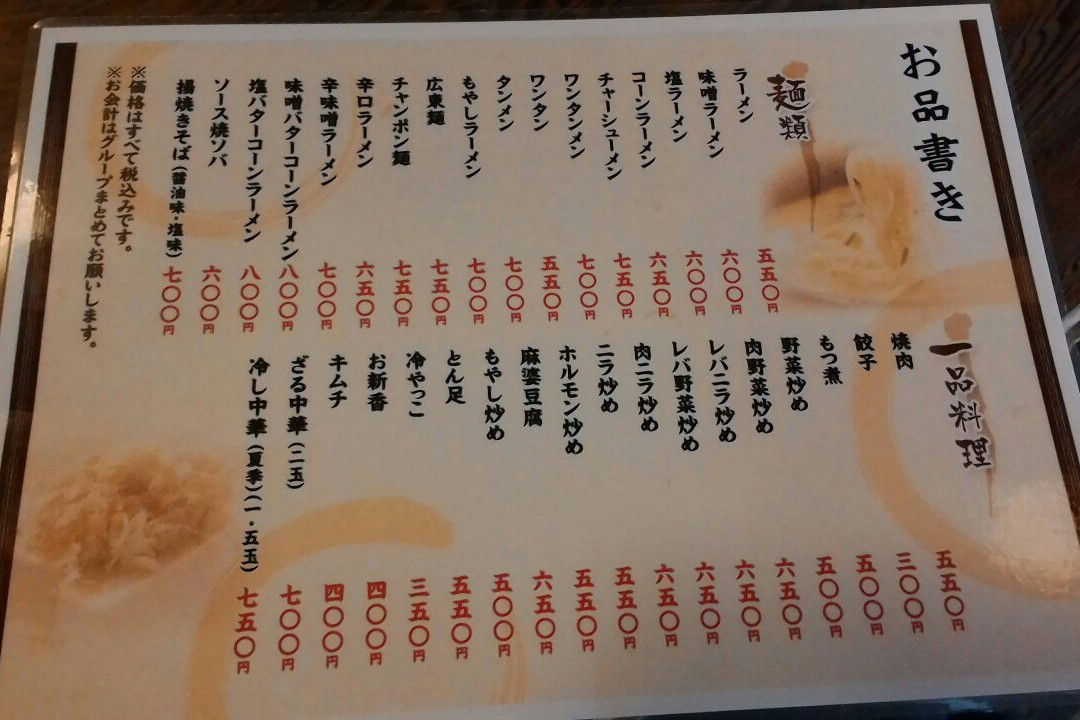 お品書き
麺類
ラーメン 五五〇円
味噌ラーメン 六〇〇円
塩ラーメン 六〇〇円
コーンラーメン 六五〇円
チャーシューメン 七五〇円
ワンタンメン 七〇〇円
ワンタン 五五〇円
タンメン 七〇〇円
もやしラーメン 七〇〇円
広東麺 七五〇円
チャンポン麺 七五〇円
辛口ラーメン 六五〇円
辛味噌ラーメン 七〇〇円
味噌バターコーンラーメン 八〇〇円
塩バターコーンラーメン 八〇〇円
ソース焼ソバ 六〇〇円
揚焼きそば（醤油味・塩味） 七〇〇円
※価格はすべて税込みです。
※お会計はグループまとめてお願いします。
一品料理
焼肉 五五〇円
餃子 三〇〇円
もつ煮 五〇〇円
野菜炒め 五〇〇円
肉野菜炒め 六五〇円
レバニラ炒め 六五〇円
レバ野菜炒め 六五〇円
肉ニラ炒め 六五〇円
ニラ炒め 五五〇円
ホルモン炒め 五五〇円
麻婆豆腐 六五〇円
もやし炒め 五〇〇円
とん足 五五〇円
冷やっこ 三五〇円
お新香 四〇〇円
キムチ 四〇〇円
ざる中華（二玉） 七〇〇円
冷し中華（夏季）（一・五玉） 七五〇円